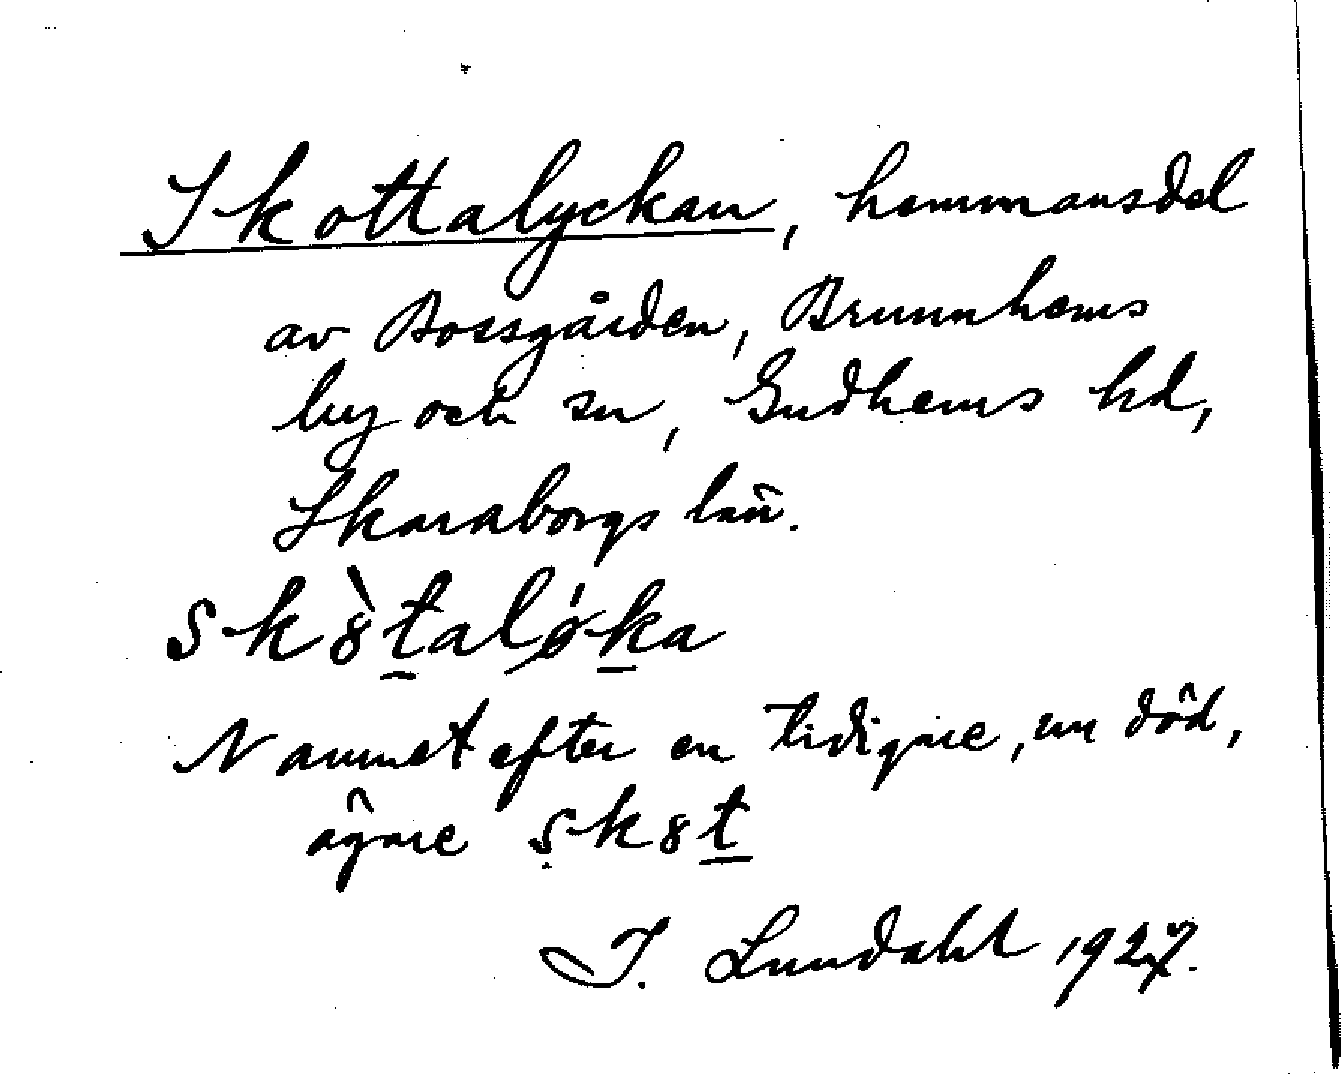 Skottalyckan, hemmansdel
av Bossgården, Brunnhems
by och sn, Gudhems hd,
Skaraborgs län.
sk8̀t̲alǿk̲a
Namnet efter en tidigare, nu död,
ägare sk8t̲
I. Lundahl 1927.